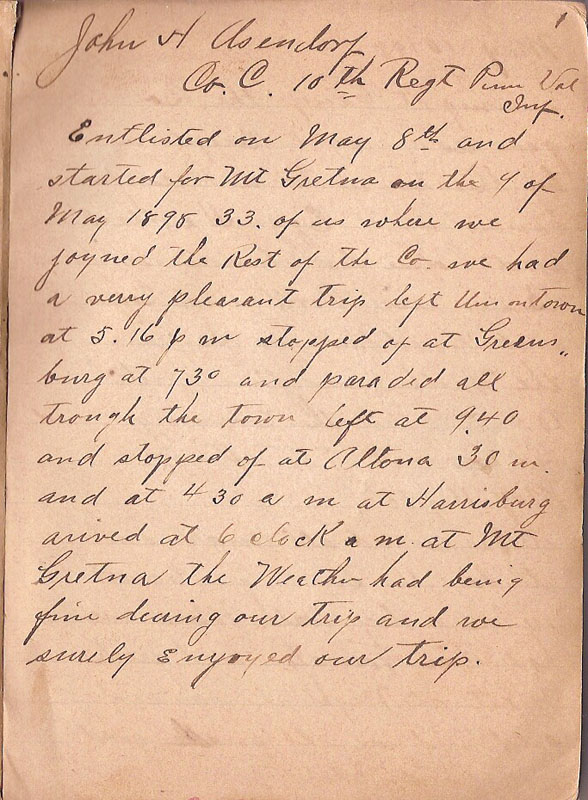 1
John H Asendorf
Co. C. 10th Regt Penn Vol
Inf.
Entlisted on May 8th and
started for Mt Gretna on the 9 of
May 1898 33. of us where we
joyned the Rest of the Co. we had
a verry pleasant trip left Uniontown
at 5.16 p m stopped of at Greens„
burg at 730 and paraded all
trough the town left at 9.40
and stopped of at Altona 30 m.
and at 4 30 a m at Harrisburg
arived at 6 clock a m. at Mt
Gretna the Weather had being
fine during our trip and we
surely Enyoyed our trip.